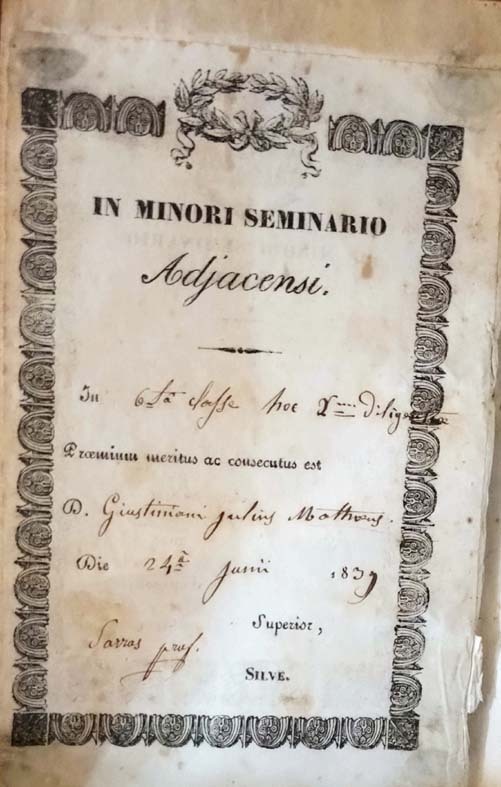 IN MINORI SEMINARIO
Adjacensi.
In 6ta classe hoc 2um Diligentiæ
Præmium meritus ac consecutus est
D. Giustiniani julius Matheus.
Die 24a junii 1839
Superior,
prof.
SILVE.